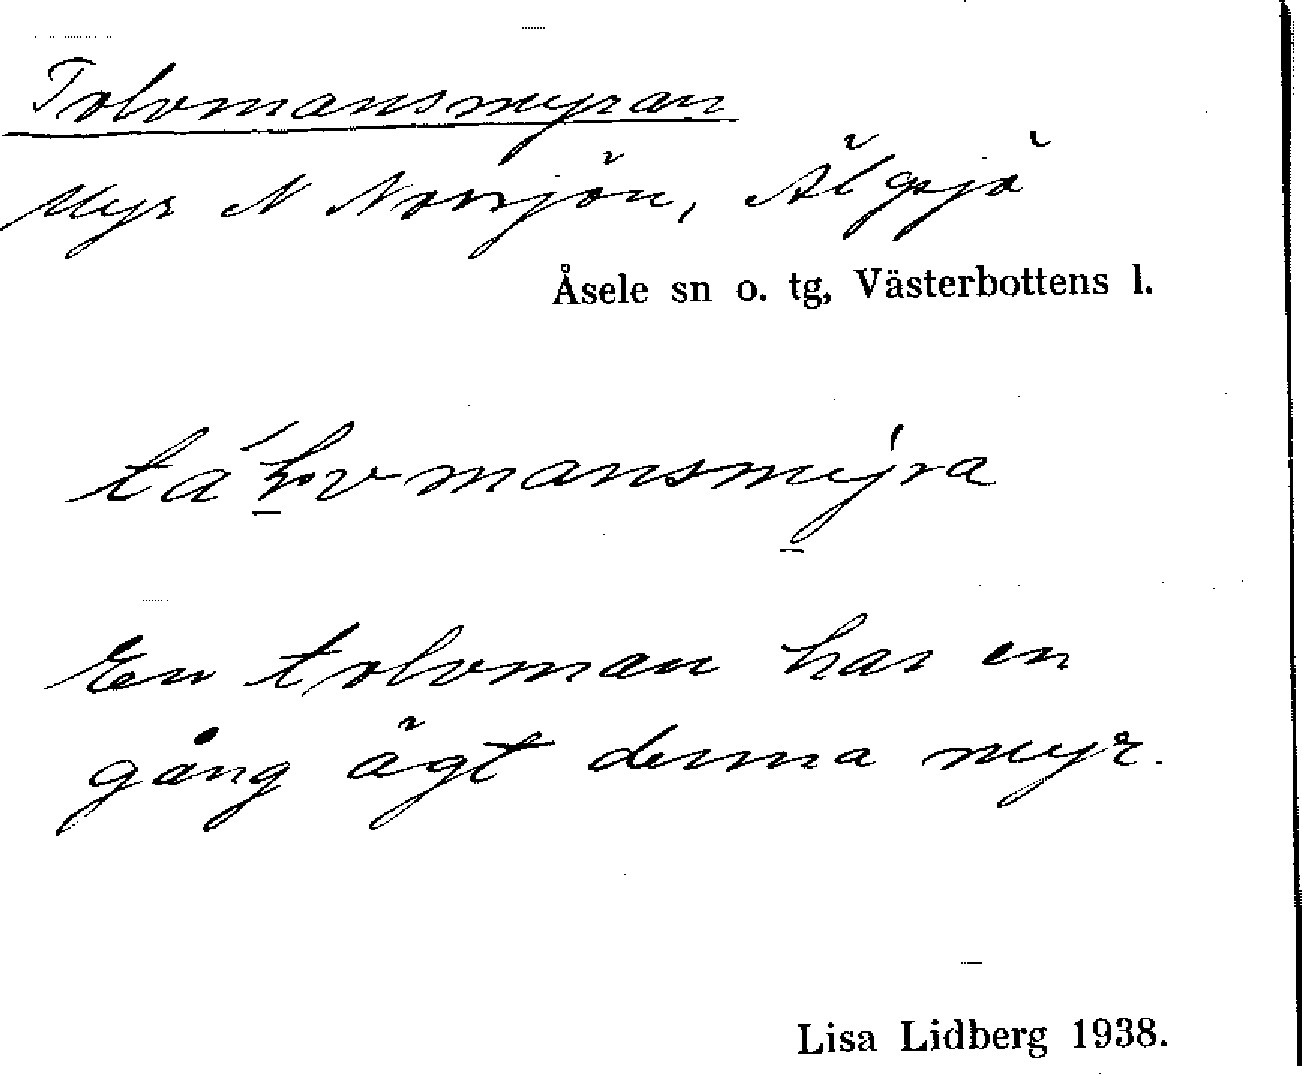 Tolvmansmyran
Myr N Norrsjön, Älgsjö
Åsele sn o. tg, Västerbottens l.
En tolvman har en
gång ägt denna myr.
Lisa Lidberg 1938.